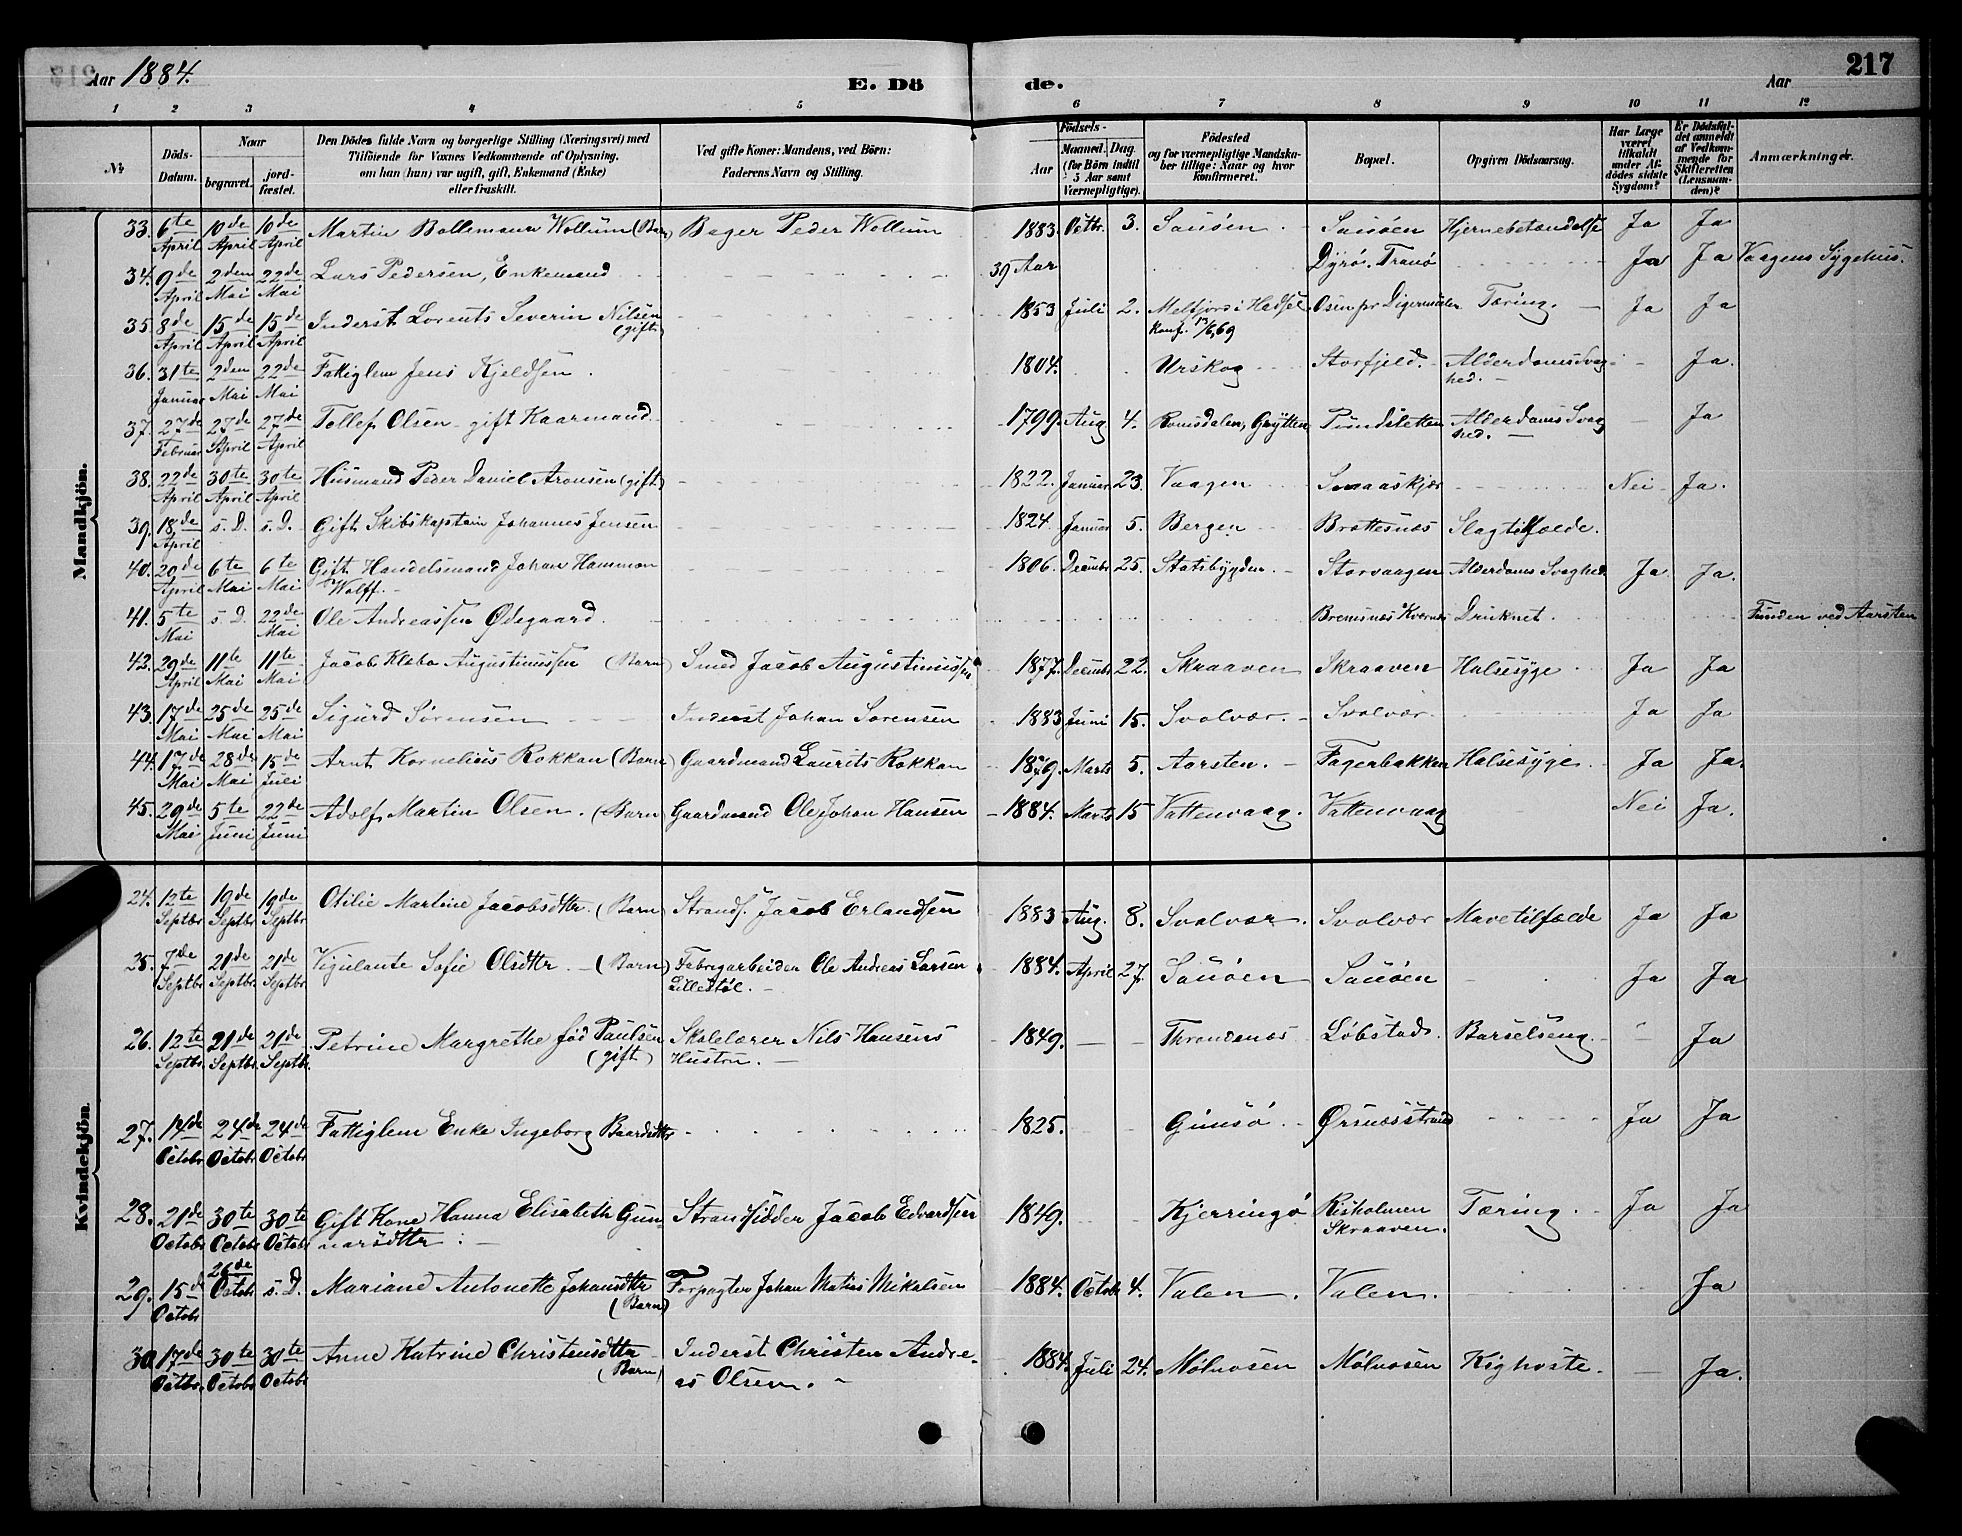 217
Aar 1884.
E. Dö de.
Aar
1 2 3 4 5 6 7 8 9 10 11 12
No
Döds-Datum.
Naar
begravet.
jord-fæstet.
Den Dödes fulde Navn og borgerlige Stilling (Næringsvei) med
Tilföiende for Voxnes Vedkommende af Oplysning,
om han (hun) var ugift, gift, Enkemand (Enke)
eller fraskilt.
Ved gifte Koner: Mandens, ved Börn:
Faderens Navn og Stilling.
Födsels-
Aar
Maaned. Dag.
(for Börn indtil
5 Aar samt
Værnepligtige).
Födested
og for værnepligtige Mandska-
ber tillige: Naar og hvor
konfirmeret.
Bopæl.
Opgiven Dödsaarsag.
Har Læge
været
tilkaldt
under Af-
dödes sidste
Sygdom?
Er Dödsfal-
det anmeldt
af Vedkom-
mende for
Skifteretten
(Lensman-
den)?
Anmærkninger.
Mandkjön.
33. 6te April 10de April 10de April Martin Bollemann Wollum (Barn) Bager Peder Wollum 1883. Octbr. 3. Sauöen Sauöen Hjernebetændelse Ja Ja
34. 9de April 2den Mai 22de Mai Lars Pedersen, Enkemand 39 Aar Dyrö. Tranö Ja Ja Vaagens Sygehus.
35. 8de April 15de April 15de April Inderst Lorents Severin Nilsen (gift) 1853 Juli 2. Melfjord i Hadsel Konf. 13/6 69 Osen pr Digermulen Tæring. Ja Ja
36. 31te Januar 2den Mai 22de Mai Fattiglem Jens Kjeldsen. 1804. Urskog Storfjeld. Alderdoms Svaghed. Ja.
37. 27de Februar 27de April 27de April Tollef Olsen gift Kaarmand 1799. Aug 4. Romsdalen, Grytten Pundsletten Alderdoms Svaghed. Ja
38. 22de April 30te April 30te April Husmand Peder Daniel Aronsen (gift) 1822. Januar 23. Vaagen Smaaskjær Nei Ja.
39. 18de April s. D. s. D. Gift Skibskaptain Johannes Jensen 1824. Januar 5. Bergen Brettesnæs Slagtilfælde.
40. 20de April 6te Mai 6te Mai Gift Handelsmand Johan Hammon Wolff. 1806. Decmbr 25. Statsbygden Storvaagen Alderdoms Svaghed. Ja. Ja.
41. 5te Mai s. D. 22de Mai Ole Andreassen Ødegaard. Bremsnæs Kvernæs Druknet. Funden ved Aarsten
42. 29de April 11te Mai 11te Mai Jacob Klæbo Augustinussen (Barn) Smed Jacob Augustinussen 1877. Decmbr 22. Skraaven Skraaven Halsesyge Ja Ja
43. 17de Mai 25de Mai 25de Mai Sigurd Sørensen Inderst Johan Sørensen 1883 Juni 15. Svolvær. Svolvær. Ja Ja
44. 17de Mai 28de Mai 15de Juli Arnt Kornelius Rokkan (Barn) Gaardmand Laurits Rokkan 1879. Marts 5. Aarsten. Fagerbakken Halsesyge. Ja Ja.
45. 29de Mai 5te Juni 22de Juni Adolf Martin Olsen. (Barn) Gaardmand Ole Johan Hansen 1884. Marts 15 Vattenvaag. Vattenvaag Nei Ja.
Kvindekjön.
24. 12te Septbr 19de Septbr 19de Septbr Otilie Martine Jacobsdttr. (Barn) Strands. Jacob Erlandsen 1883 Aug. 8. Svolvær. Svolvær Mavetilfælde Ja Ja
25. 7de Septbr 21de Septbr. 21de Septbr. Vigulante Sofie Olsdttr. (Barn) Fabrigarbeider Ole Andreas Larsen Lillestöl. 1884. April 27. Sauöen Sauöen Ja Ja
26. 12te Septbr. 21de Septbr. 21de Septbr. Petrine Margrethe fød Paulsen (gift) Skolelærer Nils Hansens Hustru. 1849. Throndenæs Løbstad. Barselseng. Ja
27. 14de Octobr 24de Octobr 24de Octobr Fattiglem Enke Ingeborg Baardsdttr 1825. Gimsö. Ørsnæsstrand Ja Ja
28. 21de Octobr 30te Octobr 30te Octobr Gift Kone Hanna Elisabeth Gunnarsdttr. Strandsidder Jacob Edvardsen 1849. Kjerringö Risholmen Skraaven. Tæring. Ja Ja
29. 15de Octobr 26de Octobr s. D. Mariane Antonette Johansdttr (Barn) Forpagter Johan Matias Mikalsen 1884. Octobr 4. Valen. Valen. Ja
30 17de Octbr. 30te Octobr 30te Octobr Anne Katrine Christensdttr (Barn) Inderst Christen Andreas Olsen. 1884. Juli 24. Mølnosen Mølnosen Kighoste. Ja.